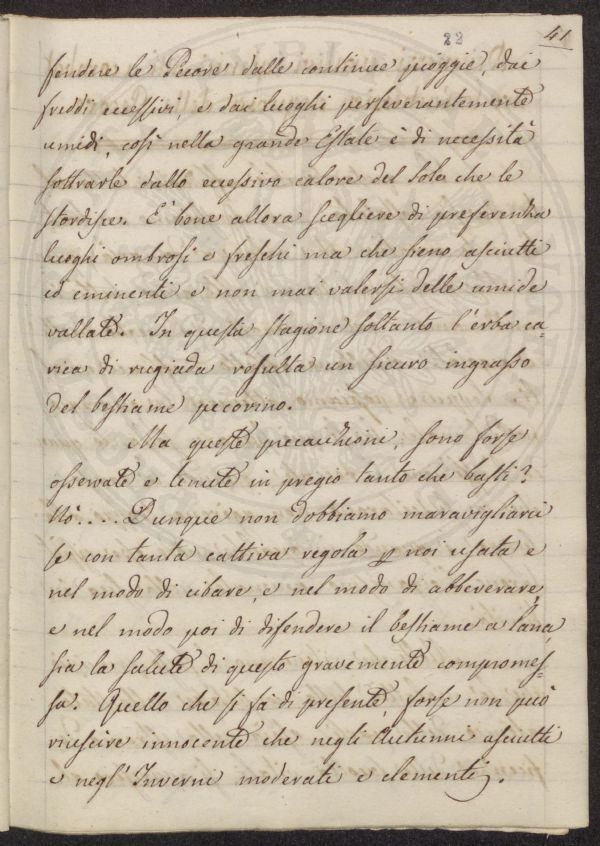 22
41
fendere le Pecore dalle continue pioggie, dai
freddi eccessivi, e dai luoghi perseverantemente
umidi, così nella grande Estate è di necessità
sottrarle dallo eccessivo calore del Sole che le
stordisce. E' bene allora scegliere di preferenza
luoghi ombrosi e freschi ma che sieno asciutti
ed eminenti e non mai valersi delle umide
vallate. In questa stagione soltanto l'erba ca=
rica di rugiada resulta un sicuro ingrasso
del bestiame pecorino.
Ma queste precauzioni, sono forse
osservate e tenute in pregio tanto che basti?
Nò.... Dunque non dobbiamo maravigliarci
se con tanta cattiva regola p noi usata e
nel modo di cibare, e nel modo di abbeverare
e nel modo poi di difendere il bestiame a lana,
sia la salute di questo gravemente compromes=
sa. Quello che si fà di presente, forse non può
riuscire innocente che negli Autunni asciutti
e negl'Inverni moderati e clementi.